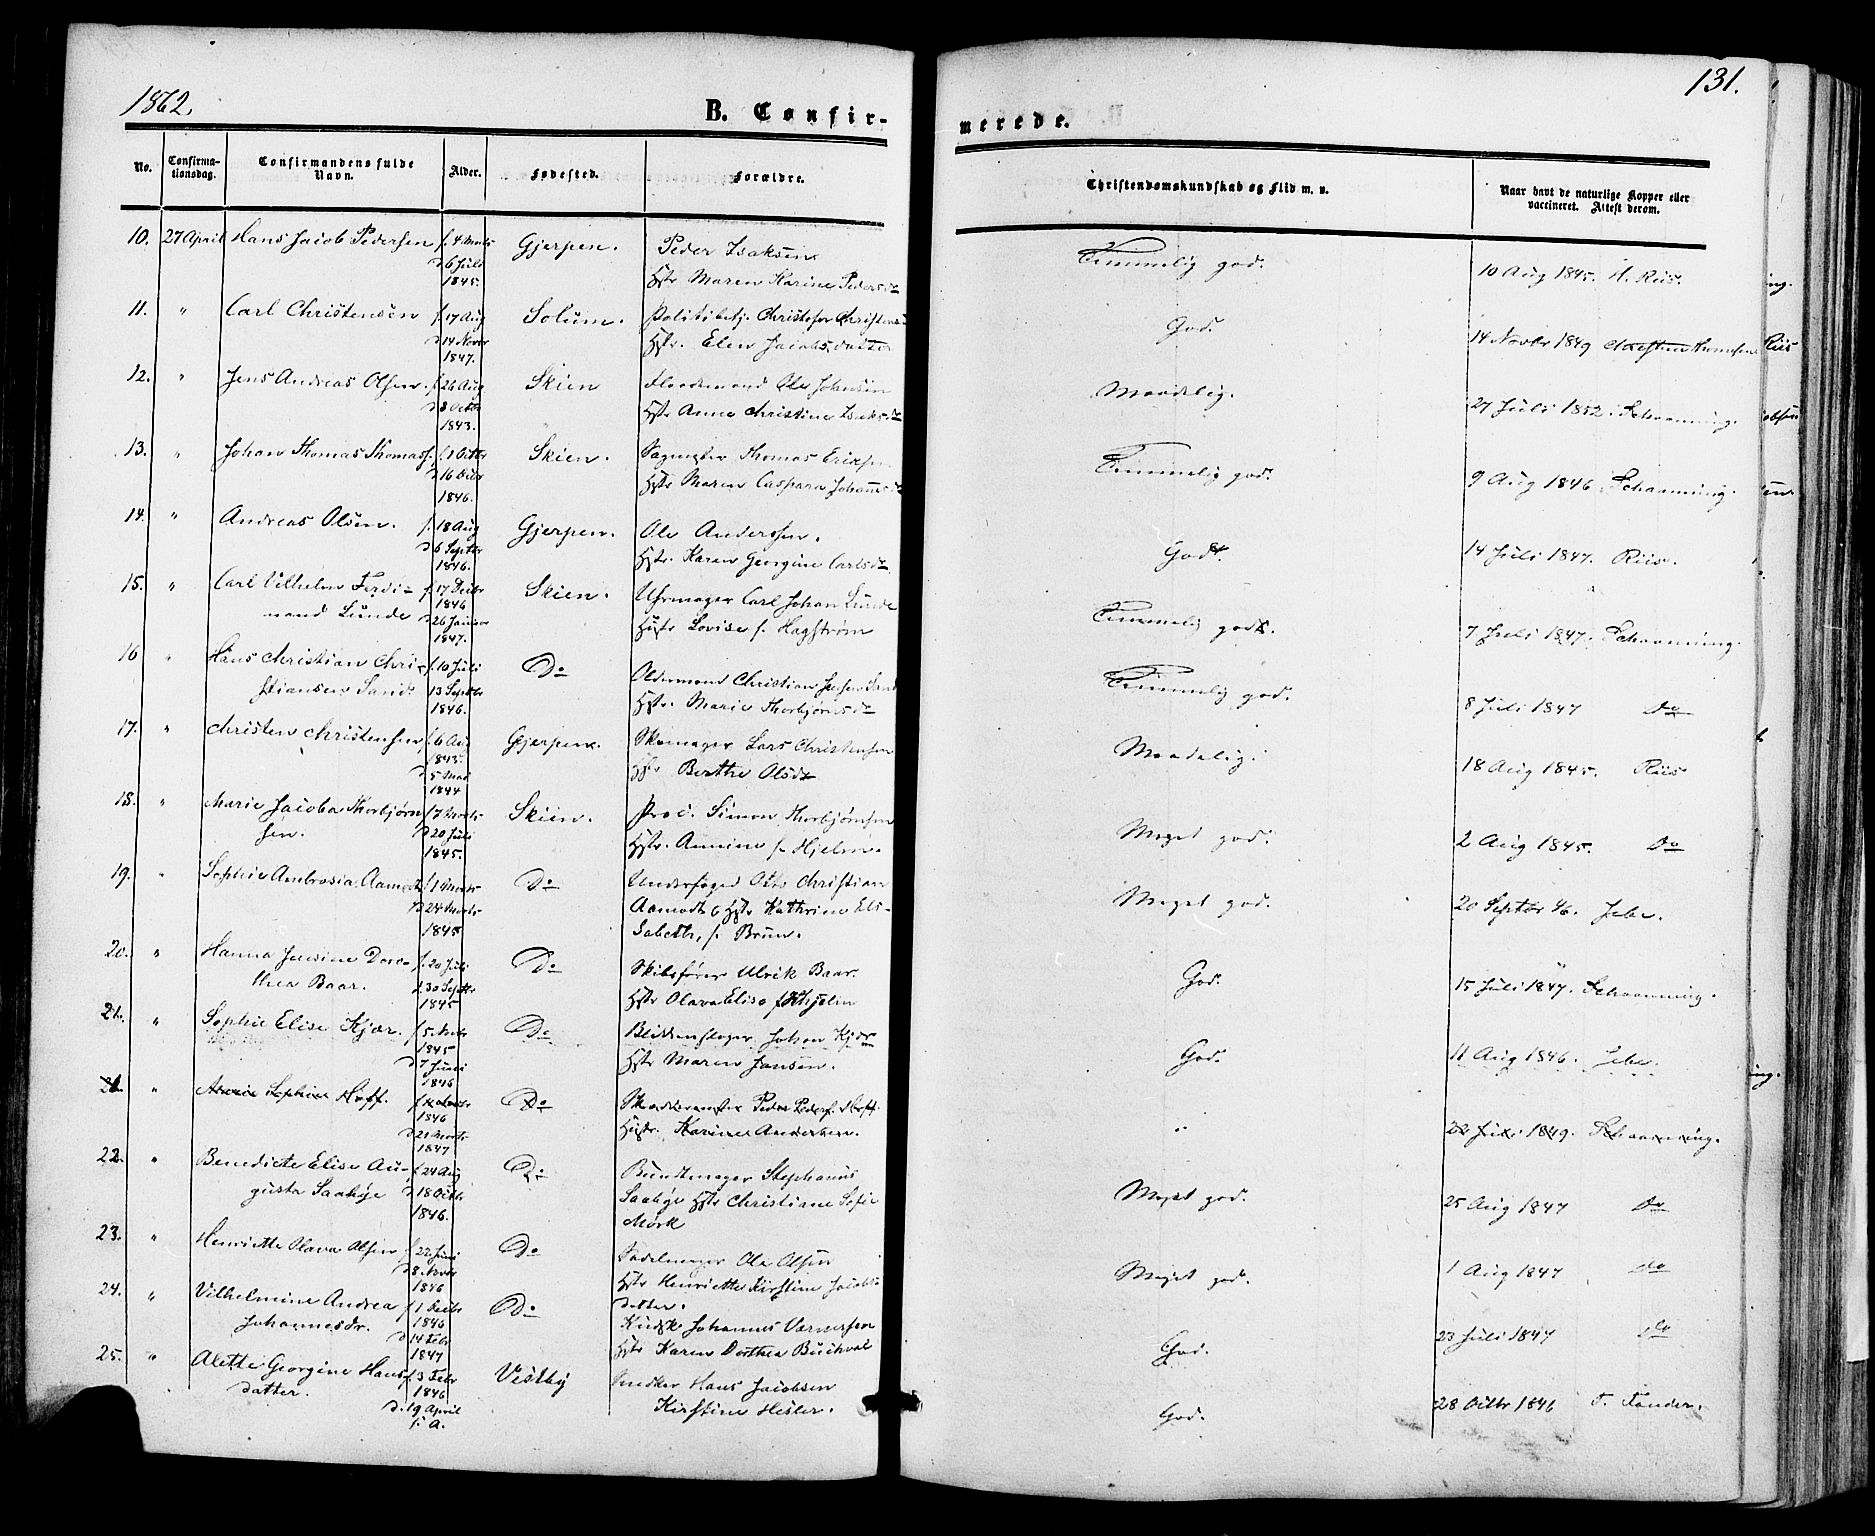 1862.
B. Confir-
merede.
131.
No.
Confirma-
tionsdag.
Confirmandens fulde
Navn.
Alder.
Fødested.
Forældre.
Christendomskundskab og Flid m. v.
Naar havt de naturlige Kopper eller
vaccineret. Attest derom.
10. 27 April Hans Jacob Pedersen f. 4 Marts Gjerpen. Peder Isaksen Temmelig god. 10 Aug 1845. H. Riis.
d 6 Juli
1845. Hstr Maren Karine Pedersdr
11. " Carl Christensen f. 17 Aug Solum. Politibetj. Christofer Christensen God. 14 Novbr 1849 Christian Thomsen
d 14 Novbr
1847. Hstr. Elen Jacobsdatter
12. " Jens Andreas Olsen. f. 26 Aug Skien Ole Johnsen Maadelig. 27 Juli 1852. Schaanning.
d 8 Octbr
1843. Hstr Anne Christine Isaksdr
13. " Johan Thomas Thomass. f. 1 Octbr Skien. Sagmester Thomas Eriksen Temmelig god. 9 Aug 1846 Schaanning.
d 16
1846. Hstr Maren Caspara Johannesdr
14. " Andreas Olsen. f. 18 Aug Gjerpen. Ole Anderssen. Godt. 14 Juli 1847. Riis.
d 6 Septbr
1846. Hstr. Karen Georgine Carlsdr
15. " Carl Vilhelm Ferdi- f. 17 Decbr Skien. Uhrmager Carl Johan Lunde Temmelig god. 7 Juli 1847. Schaanning.
nand Lunde 1846
d 26 Januar
1847. Hstr Lovise f. Hagstrøm
16 " Hans Christian Chri- f. 10 Juli Do Oldermand Christian Jensen Sand Temmelig god. 8 Juli 1847 Do
stiansen Sand. 13 Septbr
1846. Hstr. Marie Thorbjørnsdr
17. " Christen Christensen f. 6 Aug Gjerpen. Skomager Lars Christensen Maadelig. 18 Aug 1845. Riis
1843.
d 5 Mai
1844 Hstr Berthe Olsdr
18. " Marie Jacoba Thorbjørn- f. 7 Marts Skien. Proc. Simon Thorbjørnsen Meget god. 2 Aug 1845. Do
sen. d 20 Juli
1845. Hstr. Annine f. Hjelm.
19. " Sophie Ambrosia Aamodt f. 1 Marts Do Underfoged Otto Christian Meget god. 20 Septbr 46. Jebe.
d 24 Marts Aamodt & Hstr Kathrine Eli-
1845 sabeth, f. Brun.
20. " Hanna Jensine Doro- f. 20 Juli Do Skibsfører Ulrik Baar God. 15 Juli 1847. Schaanning.
thea Baar. d. 30 Septbr
1845 Hstr Olava Elise f.
21. " Sophie Elise Kjær. f. 5. Do Blikkenslager Johan Kjær God. 11 Aug 1846. Jebe.
1845
d 7 Juni
1846 Hstr Maren Jansen.
" Sophie Hoff. Do Peder Peders. Hoff " 22 1849. Schaanning.
1846
d 21 Marts
1847 Hstr. Karine Andersen.
22. " Benedicte Elise Au- f. 24 Aug Do Buntmager Stephanus Meget god. 25 Aug 1847 Do
gusta Saabye d 18 Octbr Saabye Hstr Christiane Sofie
1846. Mørk
23. " Henriette Olava Olsen f. 22 Juni Do Sadelmager Ole Olsen Meget god. 1 Aug 1847 do
d 8. Novbr
1846 Hstr Henriette Kirstine Jacobs-
datter.
24. " Vilhelmine Andrea f. 1 Decbr Do Kudsk Johannes Værnersen God. 23 Juli 1847 do
Johannesdr. 1846
d 14 Febr
1847 Hstr Karen Dorthea Buchval
25. " Alette Georgine Hans- f. 3 Febr Vestby Snedker Hans Jacobsen God. 28 Octbr 1846 T. Tønder.
datter. 1846
d. 19 April
s. A. Kirstine Hesler.